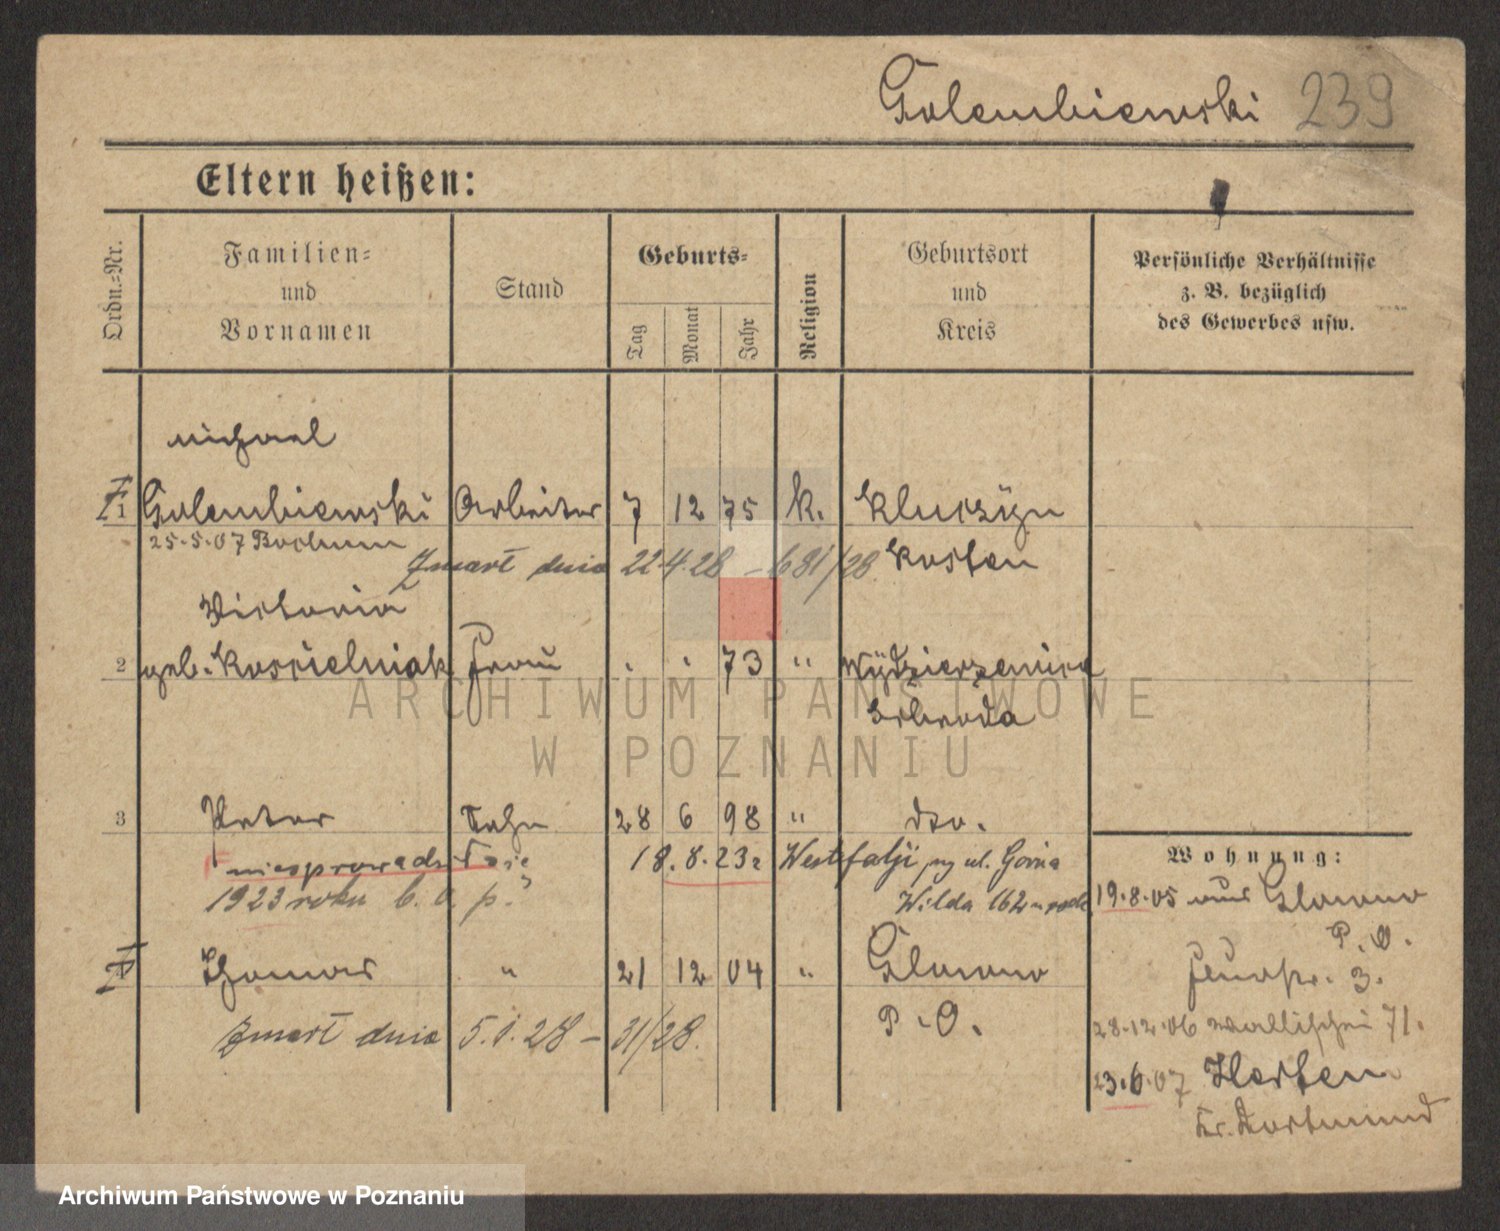 Golembiewski 239
Eltern heißen:
Ordn.=Nr.
Familien=
und
Vornamen
Stand
Geburts=
Tag
Monat
Jahr
Religion
Geburtsort
und
Kreis
Persönliche Verhältnisse
z. B. bezüglich
des Gewerbes usw.
Michael
1 Golembiewski Arbeiter 7 12 75 k. Kluczÿn
25.5.07 Bochum
Zmarł dnia 22.4.28 – 681/28 Kosten
Victoria
2 geb. Koscielniak Frau . . 73 " Wÿdzierzewice
Schroda
3 Peter Sohn 28 6 98 " dto.
Wohnung:
niesprowadził się 18.8.23 z Westfalji ul. Górna
1923 roku b. o. p. Wilda 162
19.8.05 aus Glowno
P. O.
3.
4 Thomas " 21 12 04 " Glowno
P. O.
Zmarł dnia 5.1.28 – 31/28.
28.12.06 Wallischei 71.
23.6.07 Herten
Kr. Dortmund
ARCHIWUM PAŃSTWOWE
W POZNANIU
Archiwum Państwowe w Poznaniu